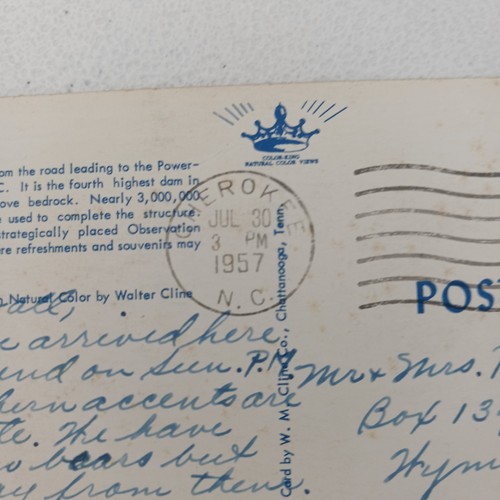 COLOR-KING
NATURAL COLOR VIEWS
om the road leading to the Power-
C. It is the fourth highest dam in
ove bedrock. Nearly 3,000,000
used to complete the structure.
trategically placed Observation
re refreshments and souvenirs may
n Natural Color by Walter Cline
CHEROKEE
JUL 30
3 PM
1957
N.C.
Card by W. M. Cline Co., Chattanooga, Tenn.
POS
all,
arrived here
end on Sun. P.M.
hern accents are
te. We have
o bears but
ay from them.
Mr & Mrs.
Box 13
Wym